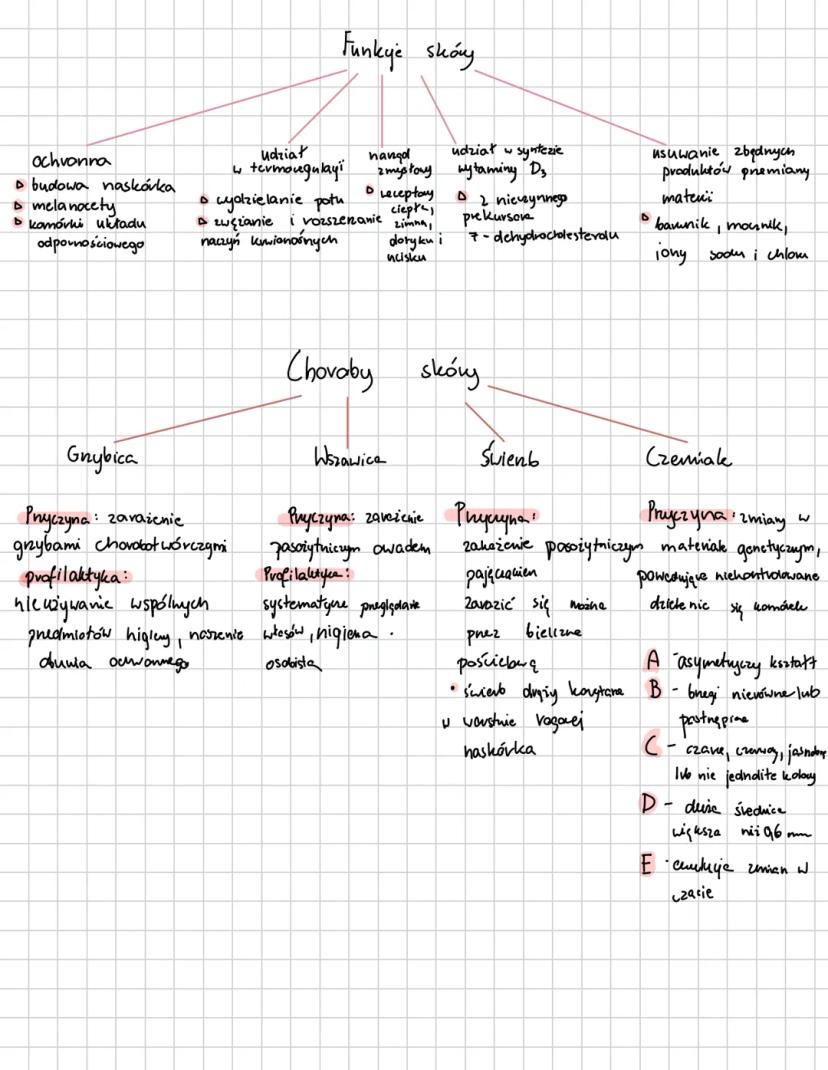 Funkcje skóry
ochronna
▷ budowa naskórka
▷ melanocety
▷ komórki układu
odpornościowego
udział
w termoregulacji
▷ wydzielanie potu
▷ zwężanie i rozszerzanie
naczyń krwionośnych
narząd
zmysłowy
▷ receptory
ciepła,
zimna,
dotyku i
ucisku
udział w syntezie
wytaminy D3
▷ z nieczynnego
prekursora
7-dehydrocholesterolu
usuwanie zbędnych
produktów przemiany
materii
▷ barwnik, mocznik,
jony sodu i chloru
Choroby skóry
Grzybica
Przyczyna: zarażenie
grzybami chorobotwórczymi
profilaktyka:
nieużywanie wspólnych
przedmiotów higieny, noszenie
obuwia ochronnego
Wszawica
Przyczyna: zarażenie
pasożytniczym owadem
Profilaktyka:
systematyczne przeglądanie
włosów, higiena
osobista
Świerzb
Przyczyna:
zakażenie pasożytniczym
pajęczakiem
zarazić się można
przez bieliznę
pościelową
• świerzb drąży korytarze
w warstwie rogowej
naskórka
Czerniak
Przyczyna: zmiany w
materiale genetycznym,
powodujące niekontrolowane
dzielenie się komórek
A - asymetryczy kształt
B - brzegi nierówne lub
postrzępione
C - czarne, czerwony, jasnobrą
lub nie jednolite kolory
D - duża średnica
większa niż 0,6 mm
E - ewolucja zmian w
czasie